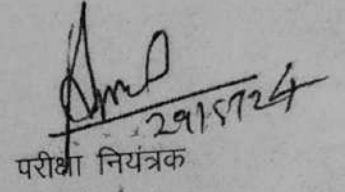 29/5/24
परीक्षा नियंत्रक